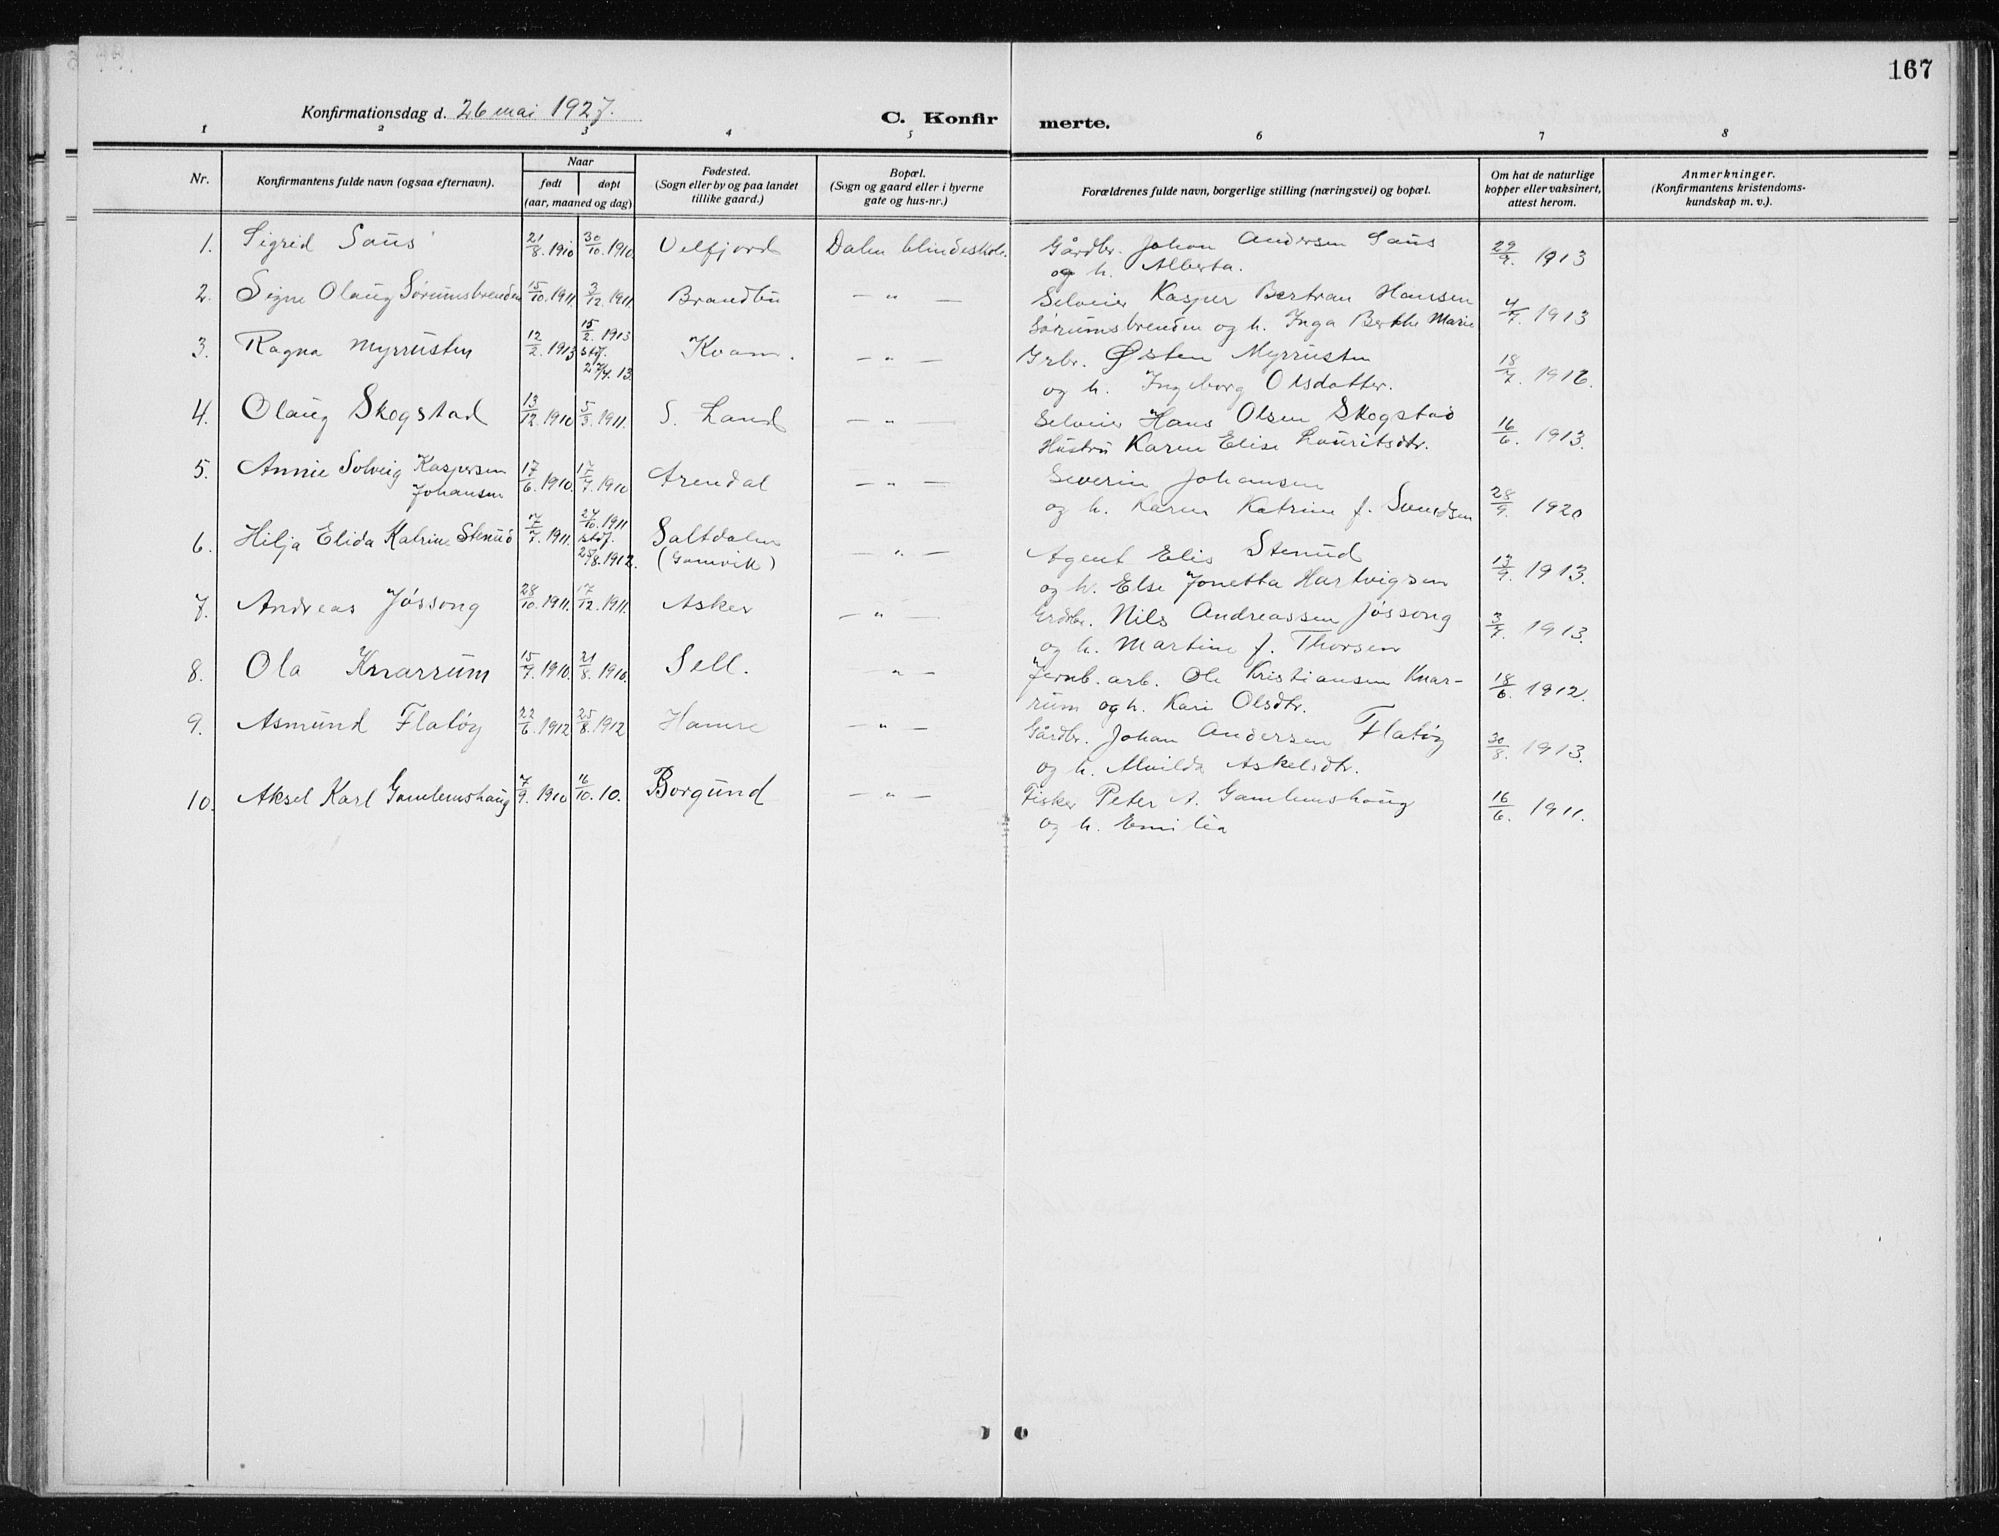 167
Konfirmationsdag d. 26 mai 1927.
C. Konfirmerte.
1 2 3 4 5 6 7 8
Nr. Konfirmantens fulde navn (ogsaa efternavn). Naar født døpt (aar, maaned og dag) Fødested. (Sogn eller by og paa landet tillike gaard.) Bopæl. (Sogn og gaard eller i byerne gate og hus-nr.) Forældrenes fulde navn, borgerlige stilling (næringsvei) og bopæl. Om hat de naturlige kopper eller vaksinert, attest herom. Anmerkninger. (Konfirmantens kristendoms-kundskap m. v.).
1. Sigrid Saus 21/8. 1910 30/10. 1910. Velfjord Dalen blindeskole. Gårdbr. Johan Andersen Saus 29/9. 1913
og h. Alberta.
2. Signe Olaug Sørumsbrenden 15/10. 1911. 3/12. 1911 Brandbu — " — Selveier Kasper Bertran Hanssen 4/7. 1913
Sørumsbrenden og h. Inga Berthe Marie
3. Ragna Myrrusten 12/2. 1913 15/2. 1913 stdf. 27/4. 13. Kvam. — " — Grbr. Østen Myrrusten 18/7. 1916.
og h. Ingeborg Olsdatter.
4. Olaug Skogstad 13/12. 1910 5/3. 1911. S. Land — " — Selveier Hans Olsen Skogstad 16/6. 1913.
Hustru Karen Elise Lauritsdtr.
5. Annie Solveig Kaspersen Johansen 17/6. 1910. 17/7. 1910 Arendal — " — Severin Johansen 28/9. 1920
og h. Karen Katrine f. Svendsen
6. Hilja Elida Katrine Stenud 7/7. 1911. 24/10. 1911 stdf. 25/8. 1912. Saltdalen (Gamvik) — " — Agent Elis Stenud 13/9. 1913.
og h. Else Jonetta Hartvigsen
7. Andreas Jøssong 28/10. 1911. 17/12. 1911. Asker — " — Grdbr. Nils Andreassen Jøssong 3/7. 1913.
og h. Martine f. Thorsen
8. Ola Knarrum 15/7. 1910. 21/8. 1910. Sell. — " — Jernb. arb. Ole Kristiansen Knar- 18/6. 1912.
rum og h. Kari Olsdtr.
9. Asmund Flatøy 22/6. 1912 25/8. 1912 Hamre — " — Gårdbr. Johan Andersen Flatøy 30/8. 1913.
og h. Alvilda Askelsdtr.
10. Aksel Karl Gamlemshaug 7/9. 1910 16/10. 10. Borgund — " — Fisker Peter A. Gamlemshaug 16/6. 1911.
og h. Emilia